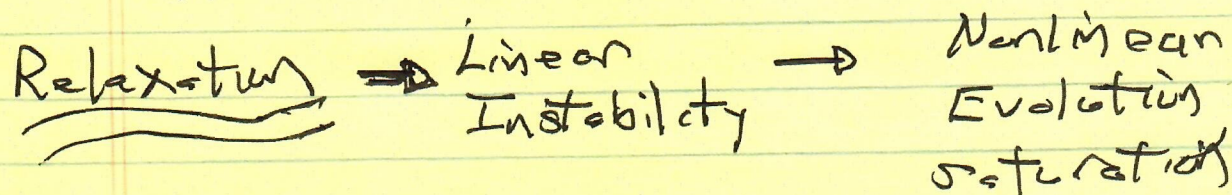 Relaxation → Linear Instability → Nonlinear Evolution saturation